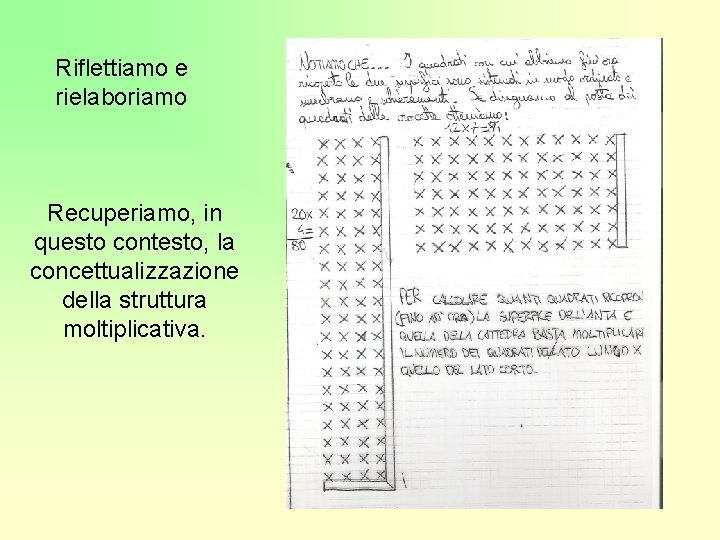 Riflettiamo e
rielaboriamo
Recuperiamo, in
questo contesto, la
concettualizzazione
della struttura
moltiplicativa.
NOTIAMO CHE... I quadrati con cui abbiamo fin'ora
ricoperto le due superfici sono sistemati in modo ordinato e
sembrano schieramenti. Se disegniamo al posto dei
quadrati delle crocette otteniamo:
12x7=84
20x
4=
80
PER CALCOLARE QUANTI QUADRATI RICOPRON
(FINO AD ORA) LA SUPERFICE DELL'ANTA E
QUELLA DELLA CATTEDRA BASTA MOLTIPLICAR
IL NUMERO DEI QUADRATI DEL LATO LUNGO X
QUELLO DEL LATO CORTO.